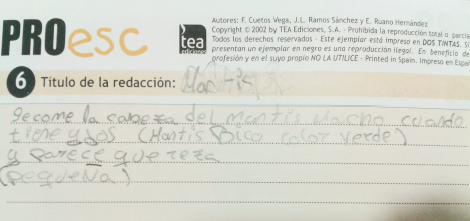 PROesc
tea
ediciones
Autores: F. Cuetos Vega, J.L. Ramos Sánchez y E. Ruano Hernández
Copyright © 2002 by TEA Ediciones, S.A. - Prohibida la reproducción total o parcia
Todos los derechos reservados - Este ejemplar está impreso en DOS TINTAS. Si
presentan un ejemplar en negro es una reproducción ilegal. En beneficio de
profesión y en el suyo propio NO LA UTILICE - Printed in Spain. Impreso en Españ
6 Título de la redacción: Mantis
se come la cabeza del mantis macho cuando
tiene gjos (Mantis Pico color verde)
y parece que reza
(pequeña)